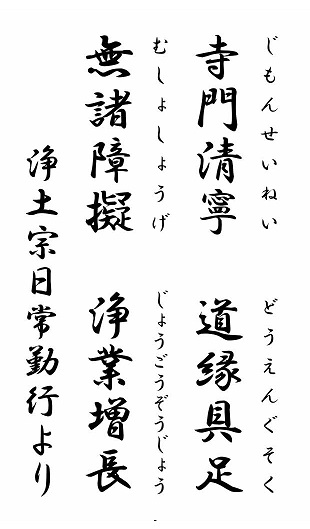 じもんせいねい どうえんぐそく
寺門清寧 道縁具足
むしょしょうげ じょうごうぞうじょう
無諸障擬 浄業増長
浄土宗日常勤行より